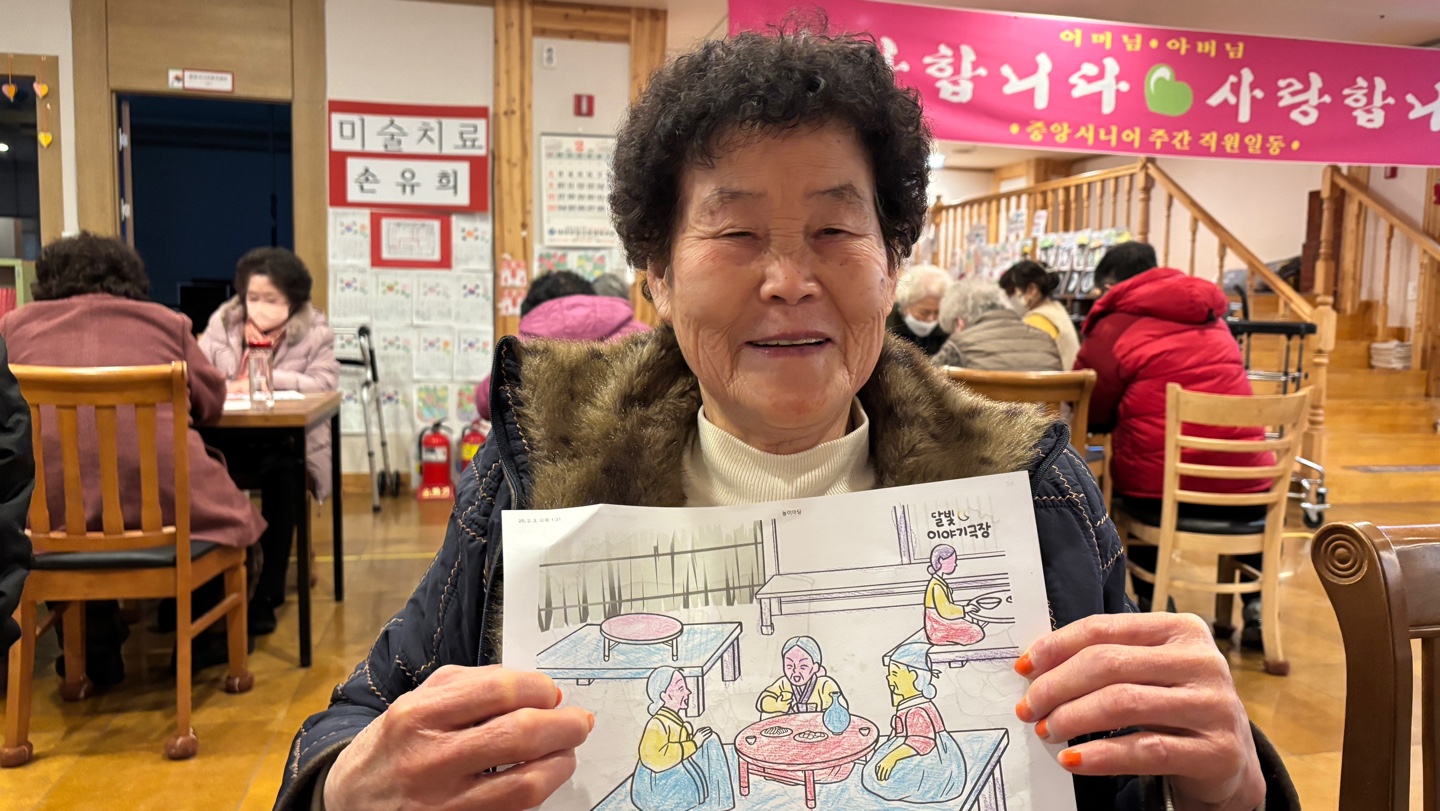 어머님·아버님
합니다 사랑합니
중앙시니어 주간 직원일동
미술치료
손유희
2
달빛
이야기극장
놀이마당